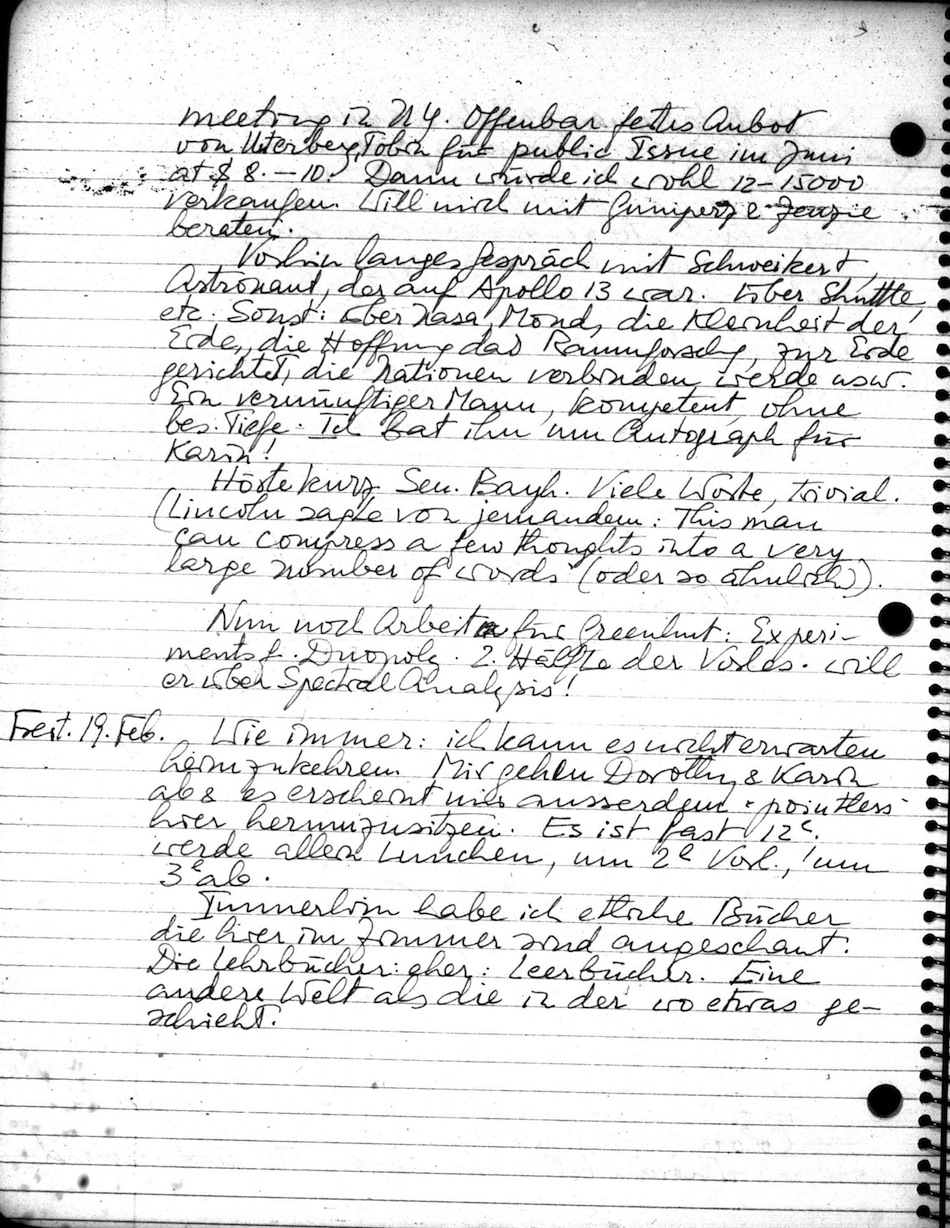 meeting in NY. Offenbar fettes Anbot
von Unterberg, Tobin für public Issue im Juni
at $ 8.–10. Dann würde ich wohl 12–15000
verkaufen. Will mich mit Gumperz &
beraten.
Vorhin langes Gespräch mit Schweikert,
Astronaut, der auf Apollo 13 war. Über Shuttle,
etc. Sonst: über Nasa, Mond, die Kleinheit der
Erde, die Hoffnung das Raumforschg, zur Erde
gerichtet, die Nationen verbinden werde usw.
Ein vernünftiger Mann, kompetent, ohne
bes. Tiefe. Ich bat ihn um Autograph für
Karin!
Hörte kurz Sen. Bayh. Viele Worte, trivial.
(Lincoln sagte von jemandem: This man
can compress a few thoughts into a very
large number of words (oder so ähnlich)).
Nun noch Arbeit für Greenhut: Experi-
ments f. Duopoly. 2. Hälfte der Vorles. will
er über Spectral Analysis!
Freit. 19. Feb. Wie immer: ich kann es nicht erwarten
heimzukehren. Mir gehen Dorothy & Karin
ab & es erscheint mir ausserdem "pointless"
hier herumzusitzen. Es ist fast 12ʰ.
werde allein lunchen, um 2ʰ Vorl., um
3ʰ ab.
Immerhin habe ich etliche Bücher
die hier im Zimmer sind angeschaut.
Die Lehrbücher: eher: Leerbücher. Eine
andere Welt als die in der wo etwas ge-
schieht.